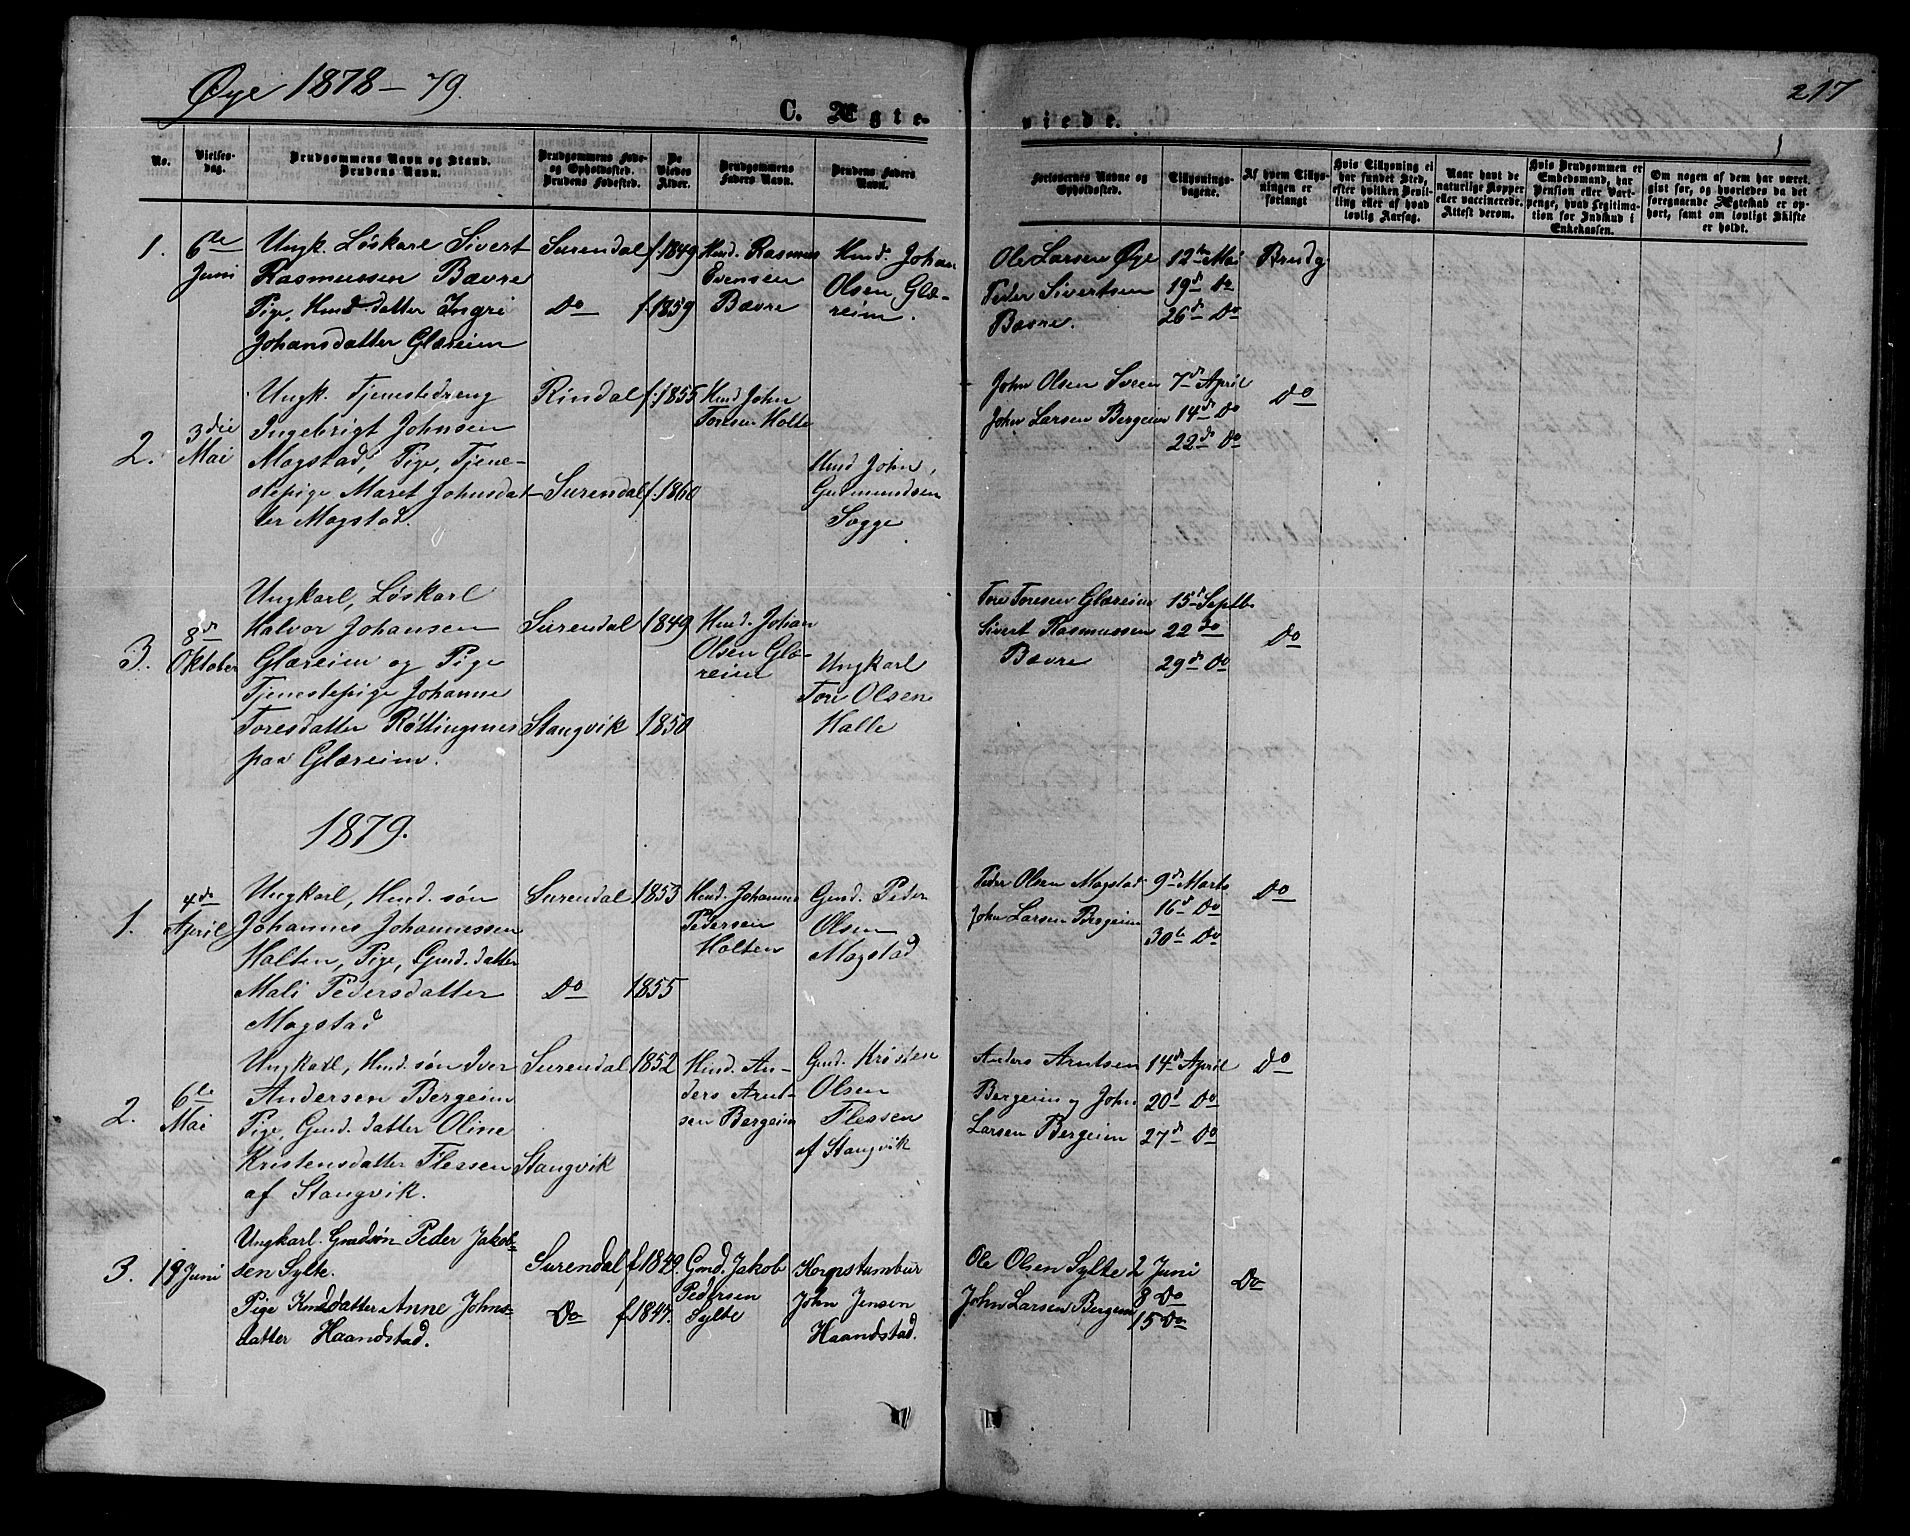 Øye 1878-79.
217
C. Ægteviede.
No.
Vielses-
dag.
Brudgommens Navn og Stand.
Brudens Navn.
Brudgommens Føde-
og Opholdssted.
Brudens Fødested.
De
Viedes
Alder.
Brudgommens
Faders Navn.
Brudens Faders
Navn.
Forlovernes Navne og
Opholdssted.
Tillysnings-
dagene.
Af hvem Tillys-
ningen er
forlangt
Hvis Tillysning ei
har fundet Sted,
efter hvilken Bevil-
ling eller af hvad
lovlig Aarsag.
Naar havt de
naturlige Kopper
eller vaccinerede.
Attest derom.
Hvis Brudgommen er
Embedsmand, har
Pension eller Vart-
penge, hvad Legitima-
tion for Indskud i
Enkekassen.
Om nogen af dem har været
gift før, og hvorledes da det
foregaaende Ægteskab er op-
hørt, samt om lovligt Skifte
er holdt.
1.
6te
Juni
Ungk. Løskarl Sivert
Rasmussen Bævre
Pige, Hmd. datter Ingri
Johansdatter Glæreim
Surendal
Do
f. 1849
f. 1859
Hmd. Rasmus
Evensen
Bævre
Hmd. Johan
Olsen Glæ-
reim.
Ole Larsen Øye
Peder Sivertsen
Bævre.
12te Mai
19d Do
26d Do
Brudg
2.
3die
Mai
Ungk. Tjenestedreng
Ingebrigt Johnsen
Mogstad, Pige, Tjene-
stepige Maret Johnsdat-
ter Mogstad.
Rindal
Surendal
f. 1855
f. 1860
Hmd John
Toresen Holte
Hmd John
Gudmundsen
Sogge
John Olsen Sveen
John Larsen Bergeim
7d April
14d Do
22d Do
Do
3.
8d
Oktober
Ungkarl, Løskarl
Halvor Johansen
Glæreim og Pige
Tjenestepige Johanne
Toresdatter Røttingsnes
paa Glæreim.
Surendal
Stangvik
1849
1850
Hmd. Johan
Olsen Glæ-
reim
Ungkarl
Tore Olsen
Halle
Tore Toresen Glæreim
Sivert Rasmussen
Bævre
15d Septb.
22 Do
29d Do
Do
1879.
1.
4de
April
Ungkarl, Hmd. søn
Johannes Johannessen
Holten, Pige, Gmd. datter
Mali Pedersdatter
Mogstad
Surendal
Do
1853
1855
Hmd. Johannes
Pedersen
Holten
Gmd. Peder
Olsen
Mogstad
Peder Olsen Mogstad
John Larsen Bergeim
9d Marts
16d Do
30te Do
Do
2.
6te
Mai
Ungkarl, Hmd. søn Iver
Andersen Bergeim
Pige, Gmd. datter Oline
Kristensdatter Flessen
af Stangvik.
Surendal
Stangvik
1852
Hmd. An-
ders Arnt-
sen Bergeim
Gmd. Kristen
Olsen
Flessen
af Stangvik
Anders Arntsen
Bergeim og John
Larsen Bergeim
14d April
20d Do
27d Do
Do
3.
19 Juni
Ungkarl. Gmdsøn Peder Jakob-
sen Sylte.
Pige Hmddatter Anne Johns-
datter Haandstad.
Surendal
Do
f. 1849.
f. 1847.
Gmd. Jakob
Pedersen
Sylte
Korpstambur
John Jensen
Haandstad.
Ole Olsen Sylte
John Larsen Bergeim
2 Juni
8 Do
15 Do
Do